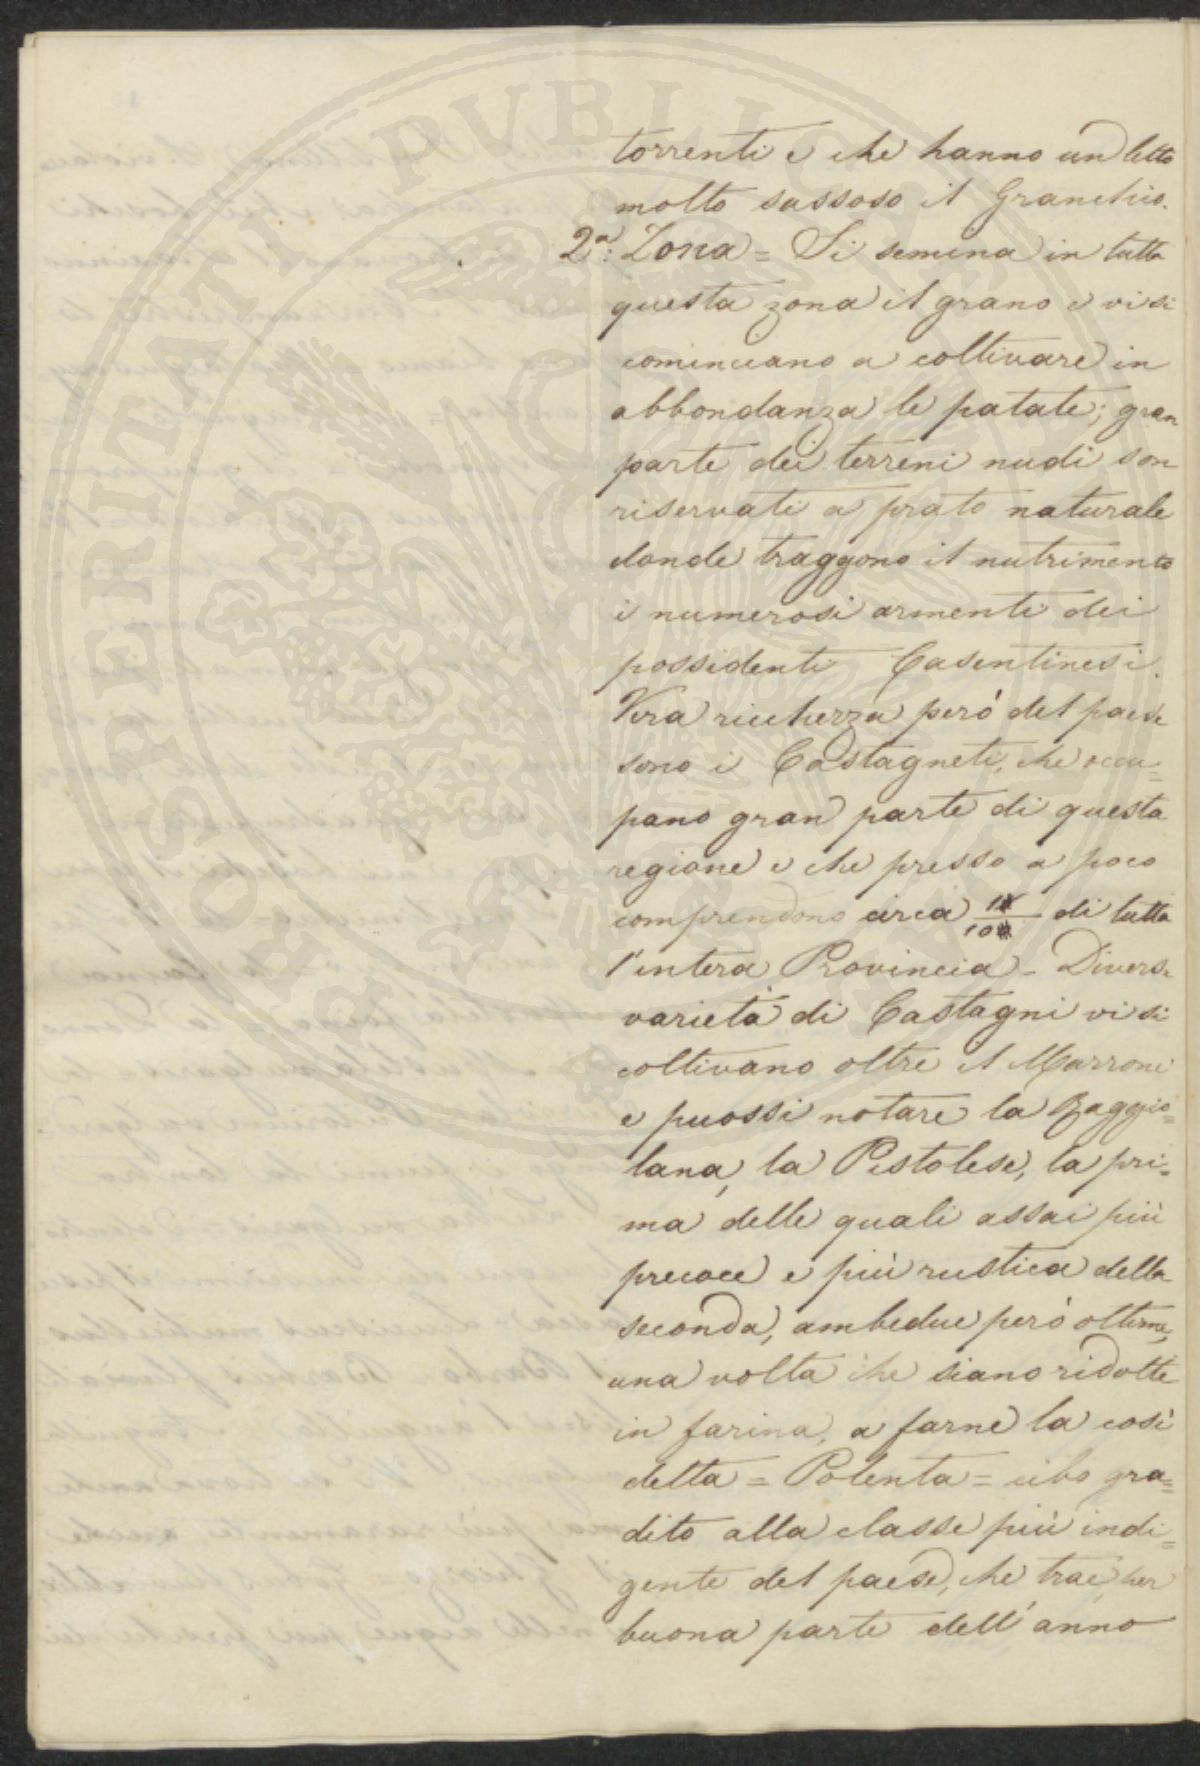 torrenti e che hanno un letto
molto sassoso il Granchio.
2ª: Zona = Si semina in tutta
questa zona il grano e vi si
cominciano a coltivare in
abbondanza le patate; gran
parte dei terreni nudi son
riservati a prato naturale
donde traggono il nutrimento
i numerosi armenti dei
possidenti Casentinesi.
Vera ricchezza però del paese
sono i Castagneti, che occu=
pano gran parte di questa
regione e che presso a poco
comprendono circa di tutta
l'intera Provincia - Diverse
varietà di Castagni vi si
coltivano oltre il Marrone
e puossi notare la Raggio=
lana, la Pistolese, la pri=
ma delle quali assai più
precoce e più rustica della
seconda, ambedue però ottime,
una volta che siano ridotte
in farina, a farne la così
detta = Polenta = cibo gra=
dito alla classe più indi=
gente del paese, che trae per
buona parte dell'anno
PROSPERITATI PUBLICAE